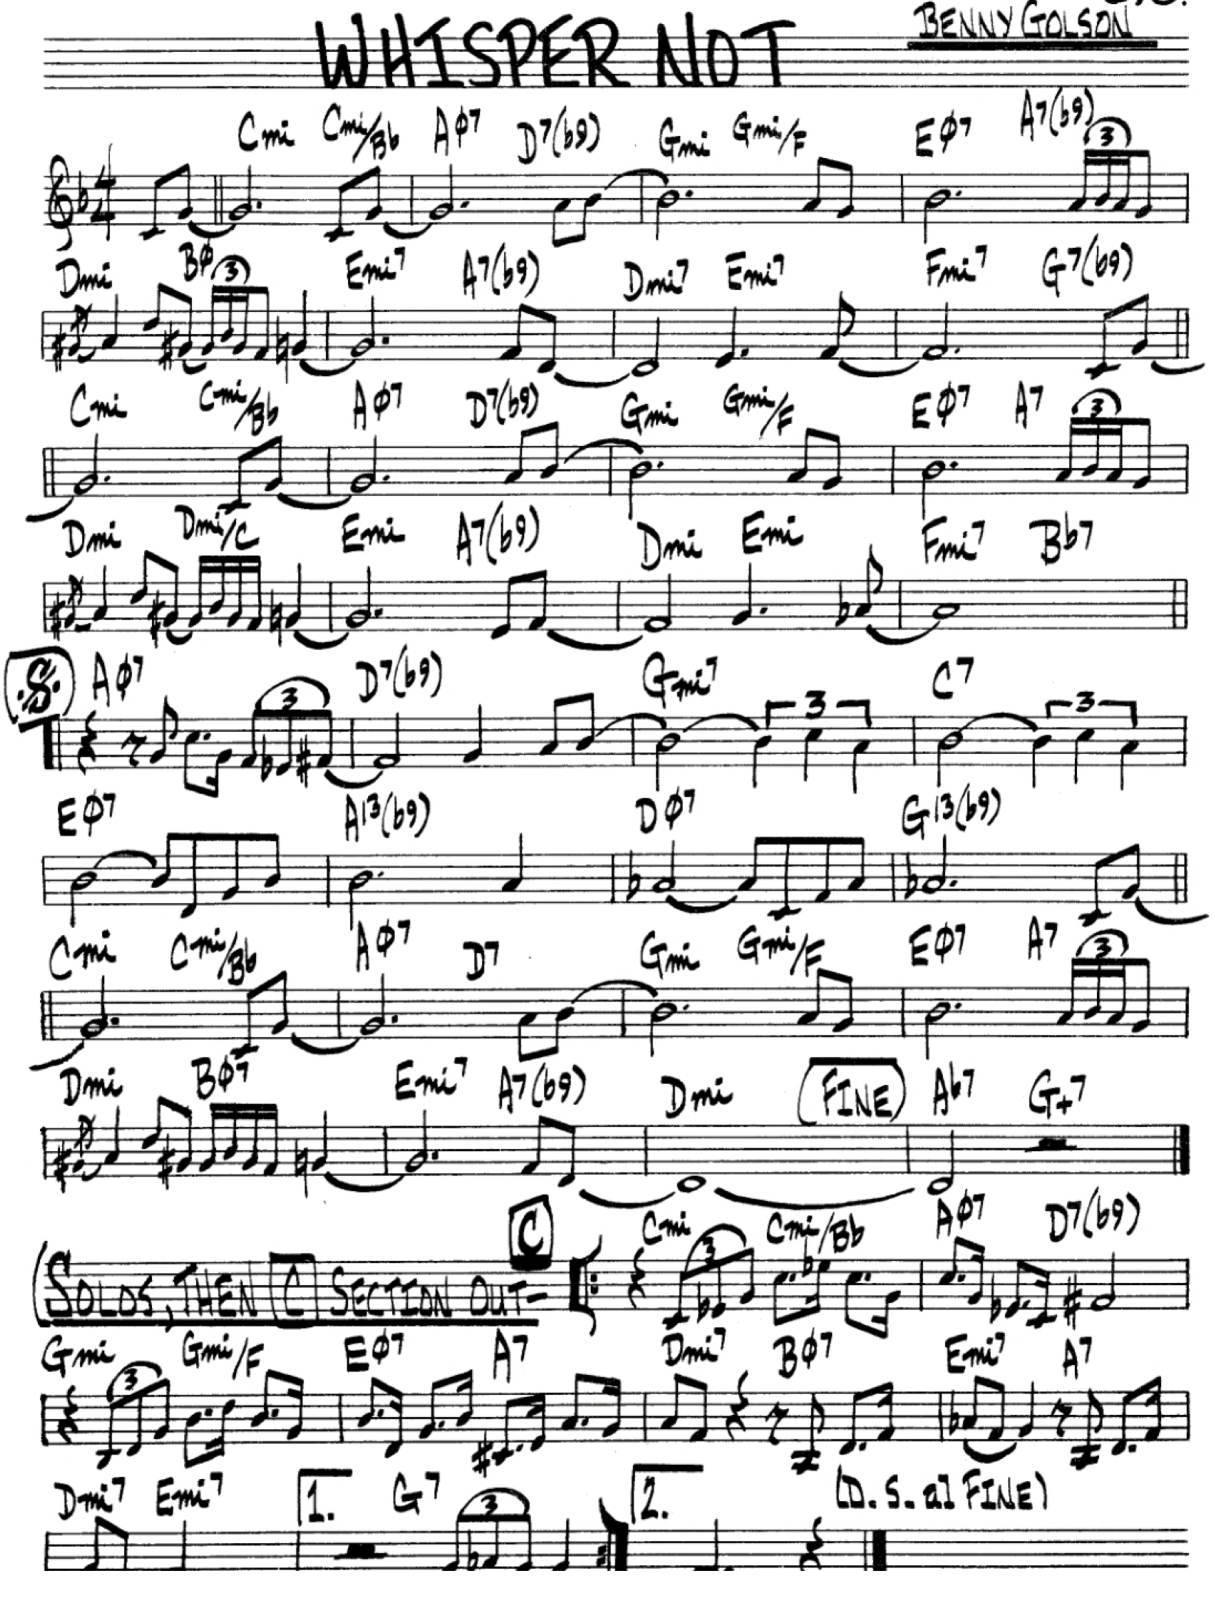 WHISPER NOT
BENNY GOLSON
Cmi Cmi/Bb Aø7 D7(b9) Gmi Gmi/F Eø7 A7(b9)
3
Dmi Bø Emi7 A7(b9) Dmi7 Emi7 Fmi7 G7(b9)
3
Cmi Cmi/Bb Aø7 D7(b9) Gmi Gmi/F Eø7 A7
3
Dmi Dmi/C Emi A7(b9) Dmi Emi Fmi7 Bb7
Aø7 D7(b9) Gmi7 C7
3 3 3
Eø7 A13(b9) Dø7 G13(b9)
Cmi Cmi/Bb Aø7 D7 Gmi Gmi/F Eø7 A7
3
Dmi Bø7 Emi7 A7(b9) Dmi (FINE) Ab7 G+7
(SOLOS, THEN C SECTION OUT- C Cmi Cmi/Bb Aø7 D7(b9)
3
Gmi Gmi/F Eø7 A7 Dmi7 Bø7 Emi7 A7
3
Dmi7 Emi7 1. G7 2. (D.S. al FINE)
3